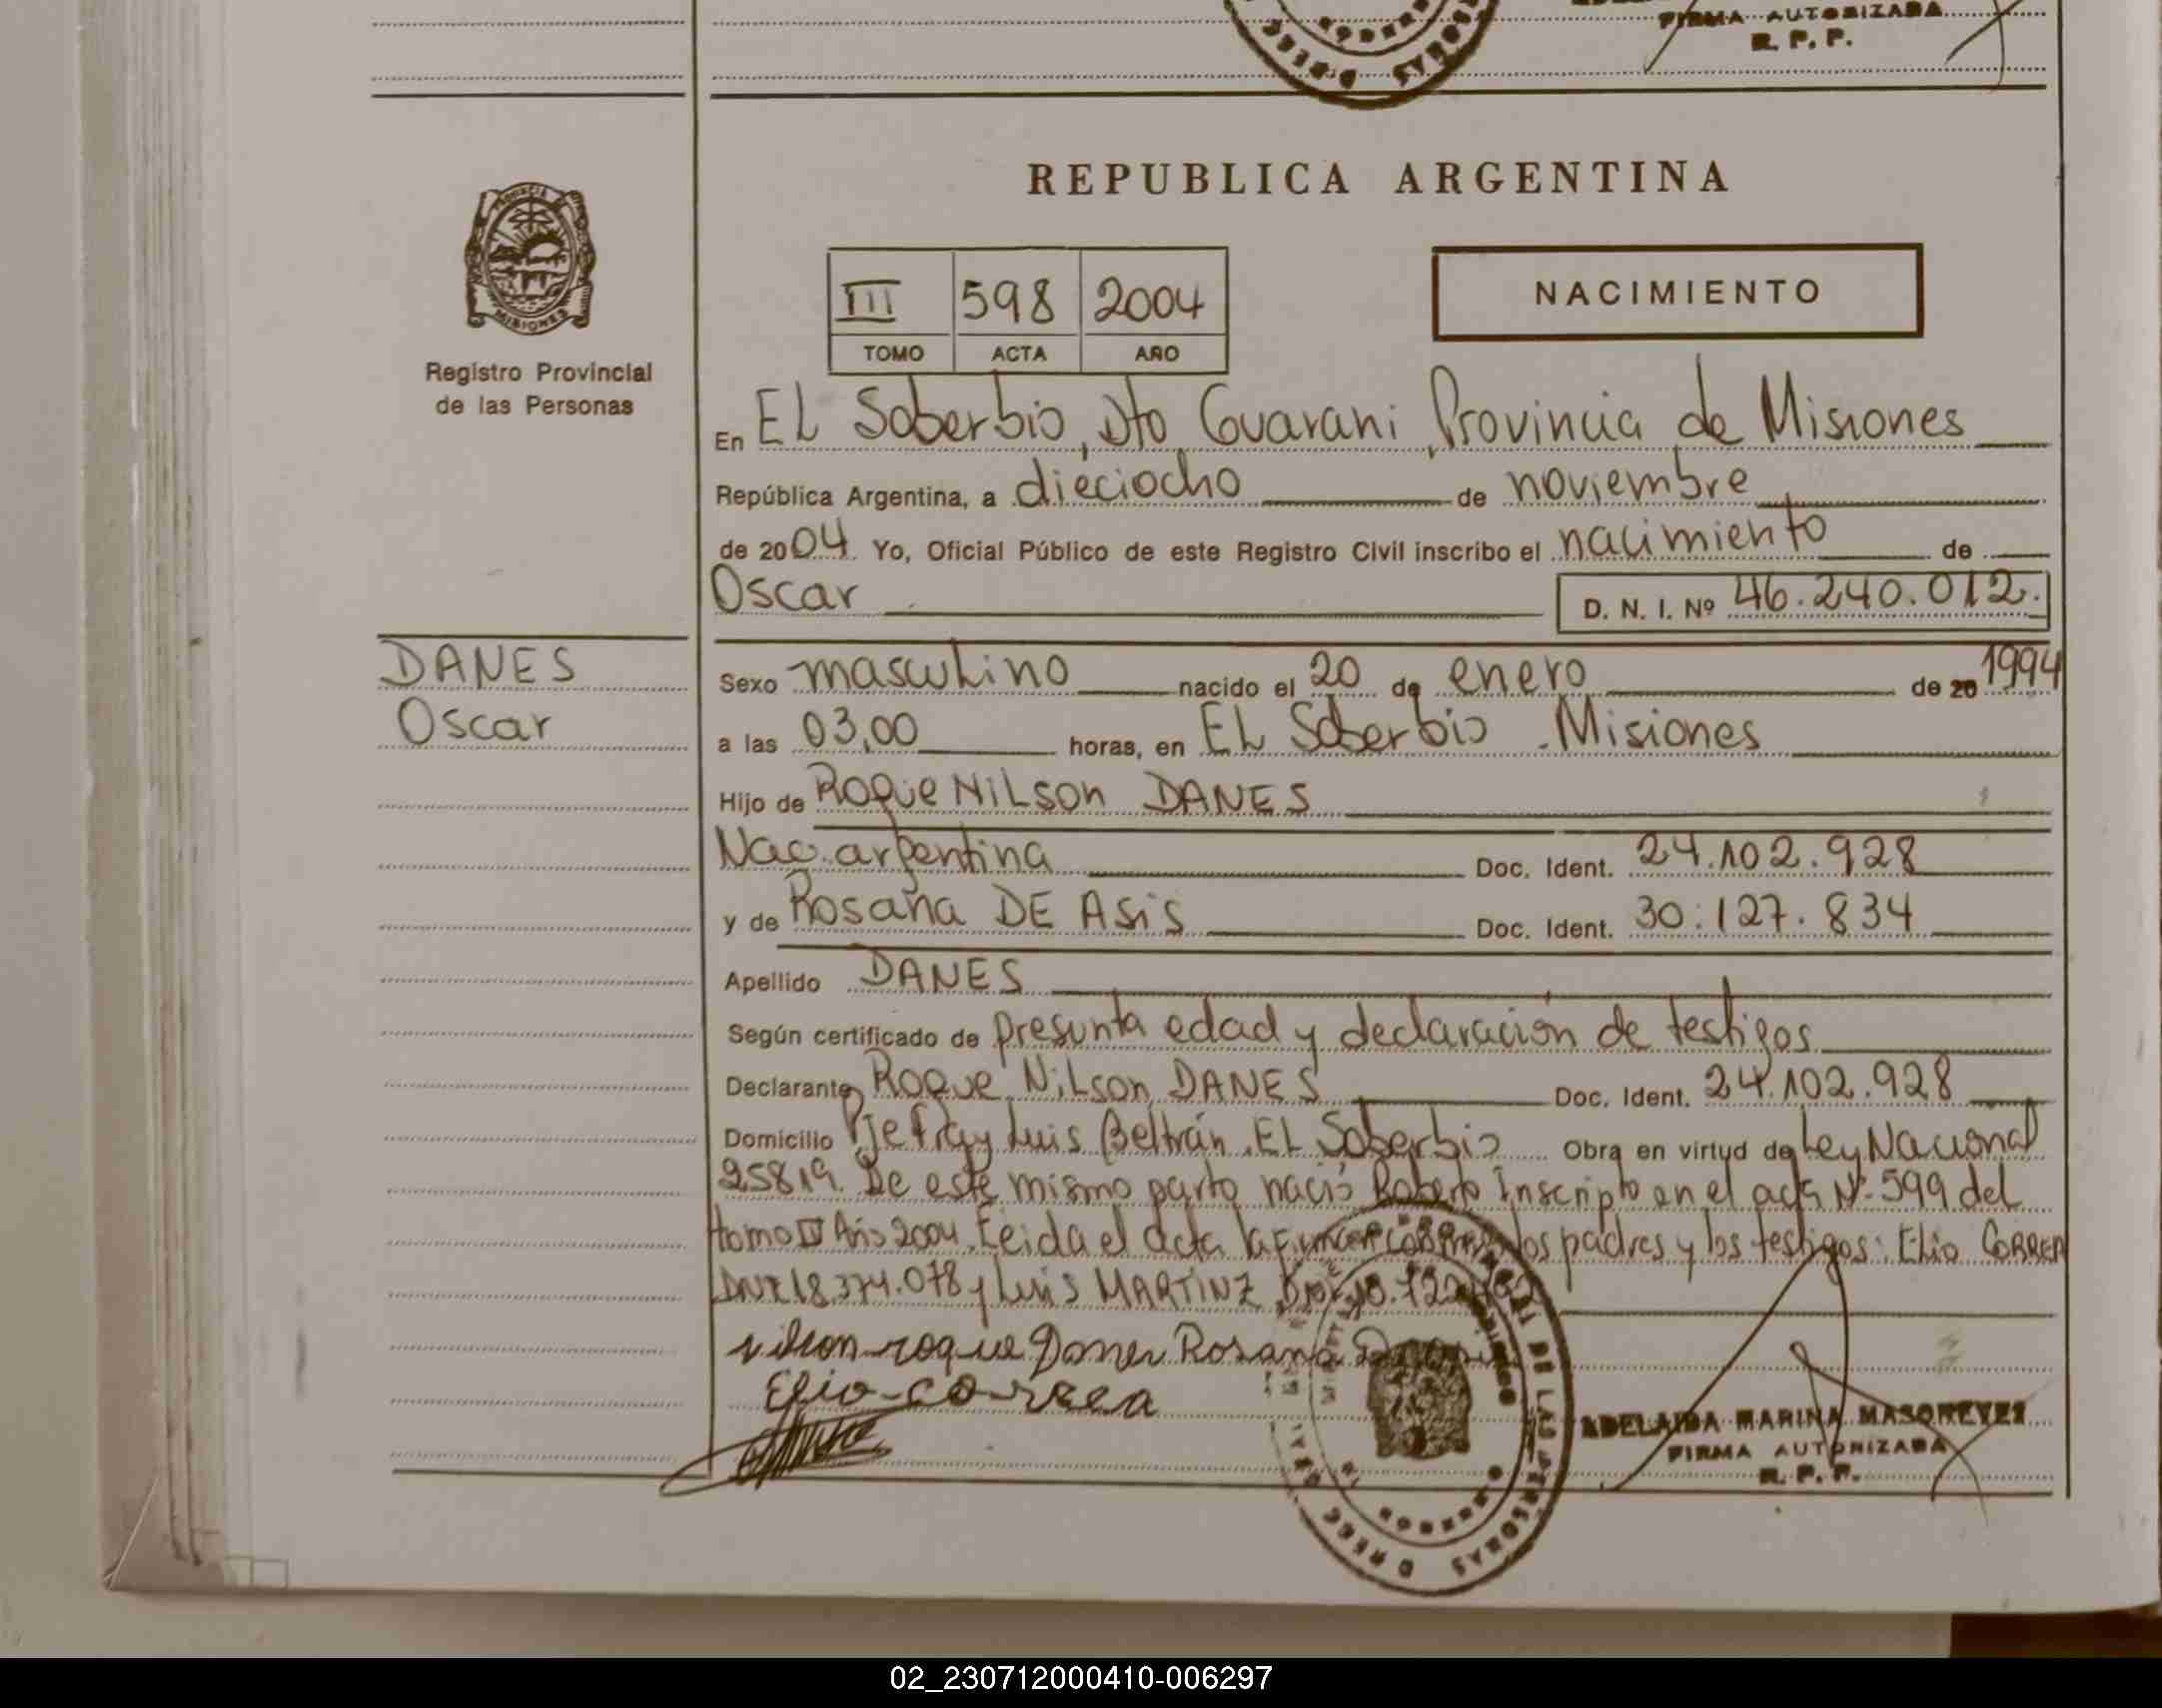 FIRMA AUTORIZADA
R. P. P.
REPUBLICA ARGENTINA
PROVINCIA DE
MISIONES
Registro Provincial
de las Personas
III 598 2004
TOMO ACTA AÑO
NACIMIENTO
En EL Soberbio, Dto Guarani, Provincia de Misiones
República Argentina, a dieciocho de noviembre
de 2004 Yo, Oficial Público de este Registro Civil inscribo el nacimiento de
Oscar D. N. I. Nº 46.240.012.
DANES
Oscar
Sexo masculino nacido el 20 de enero de 20 1994
a las 03,00 horas, en EL Soberbio - Misiones
Hijo de Roque NiLson DANES
Nac. argentina Doc. Ident. 24.102.928
y de Rosana DE ASiS Doc. Ident. 30.127.834
Apellido DANES
Según certificado de presunta edad y declaración de testigos
Declarante Roque NiLson DANES Doc. Ident. 24.102.928
Domicilio Pje Fray Luis Beltrán. EL Soberbio Obra en virtud de Ley Nacional
25819. De este mismo parto nació Roberto Inscripto en el acta Nº 599 del
tomo Año 2004. Leida el acta la firman los padres y los testigos: Elio CORREA
DNI 18.374.078 y Luis MARTINZ
nilson roque Danes Rosana
Elio-correa
ADELAIDA MARINA
FIRMA AUTORIZADA
R. P. P.
02_230712000410-006297